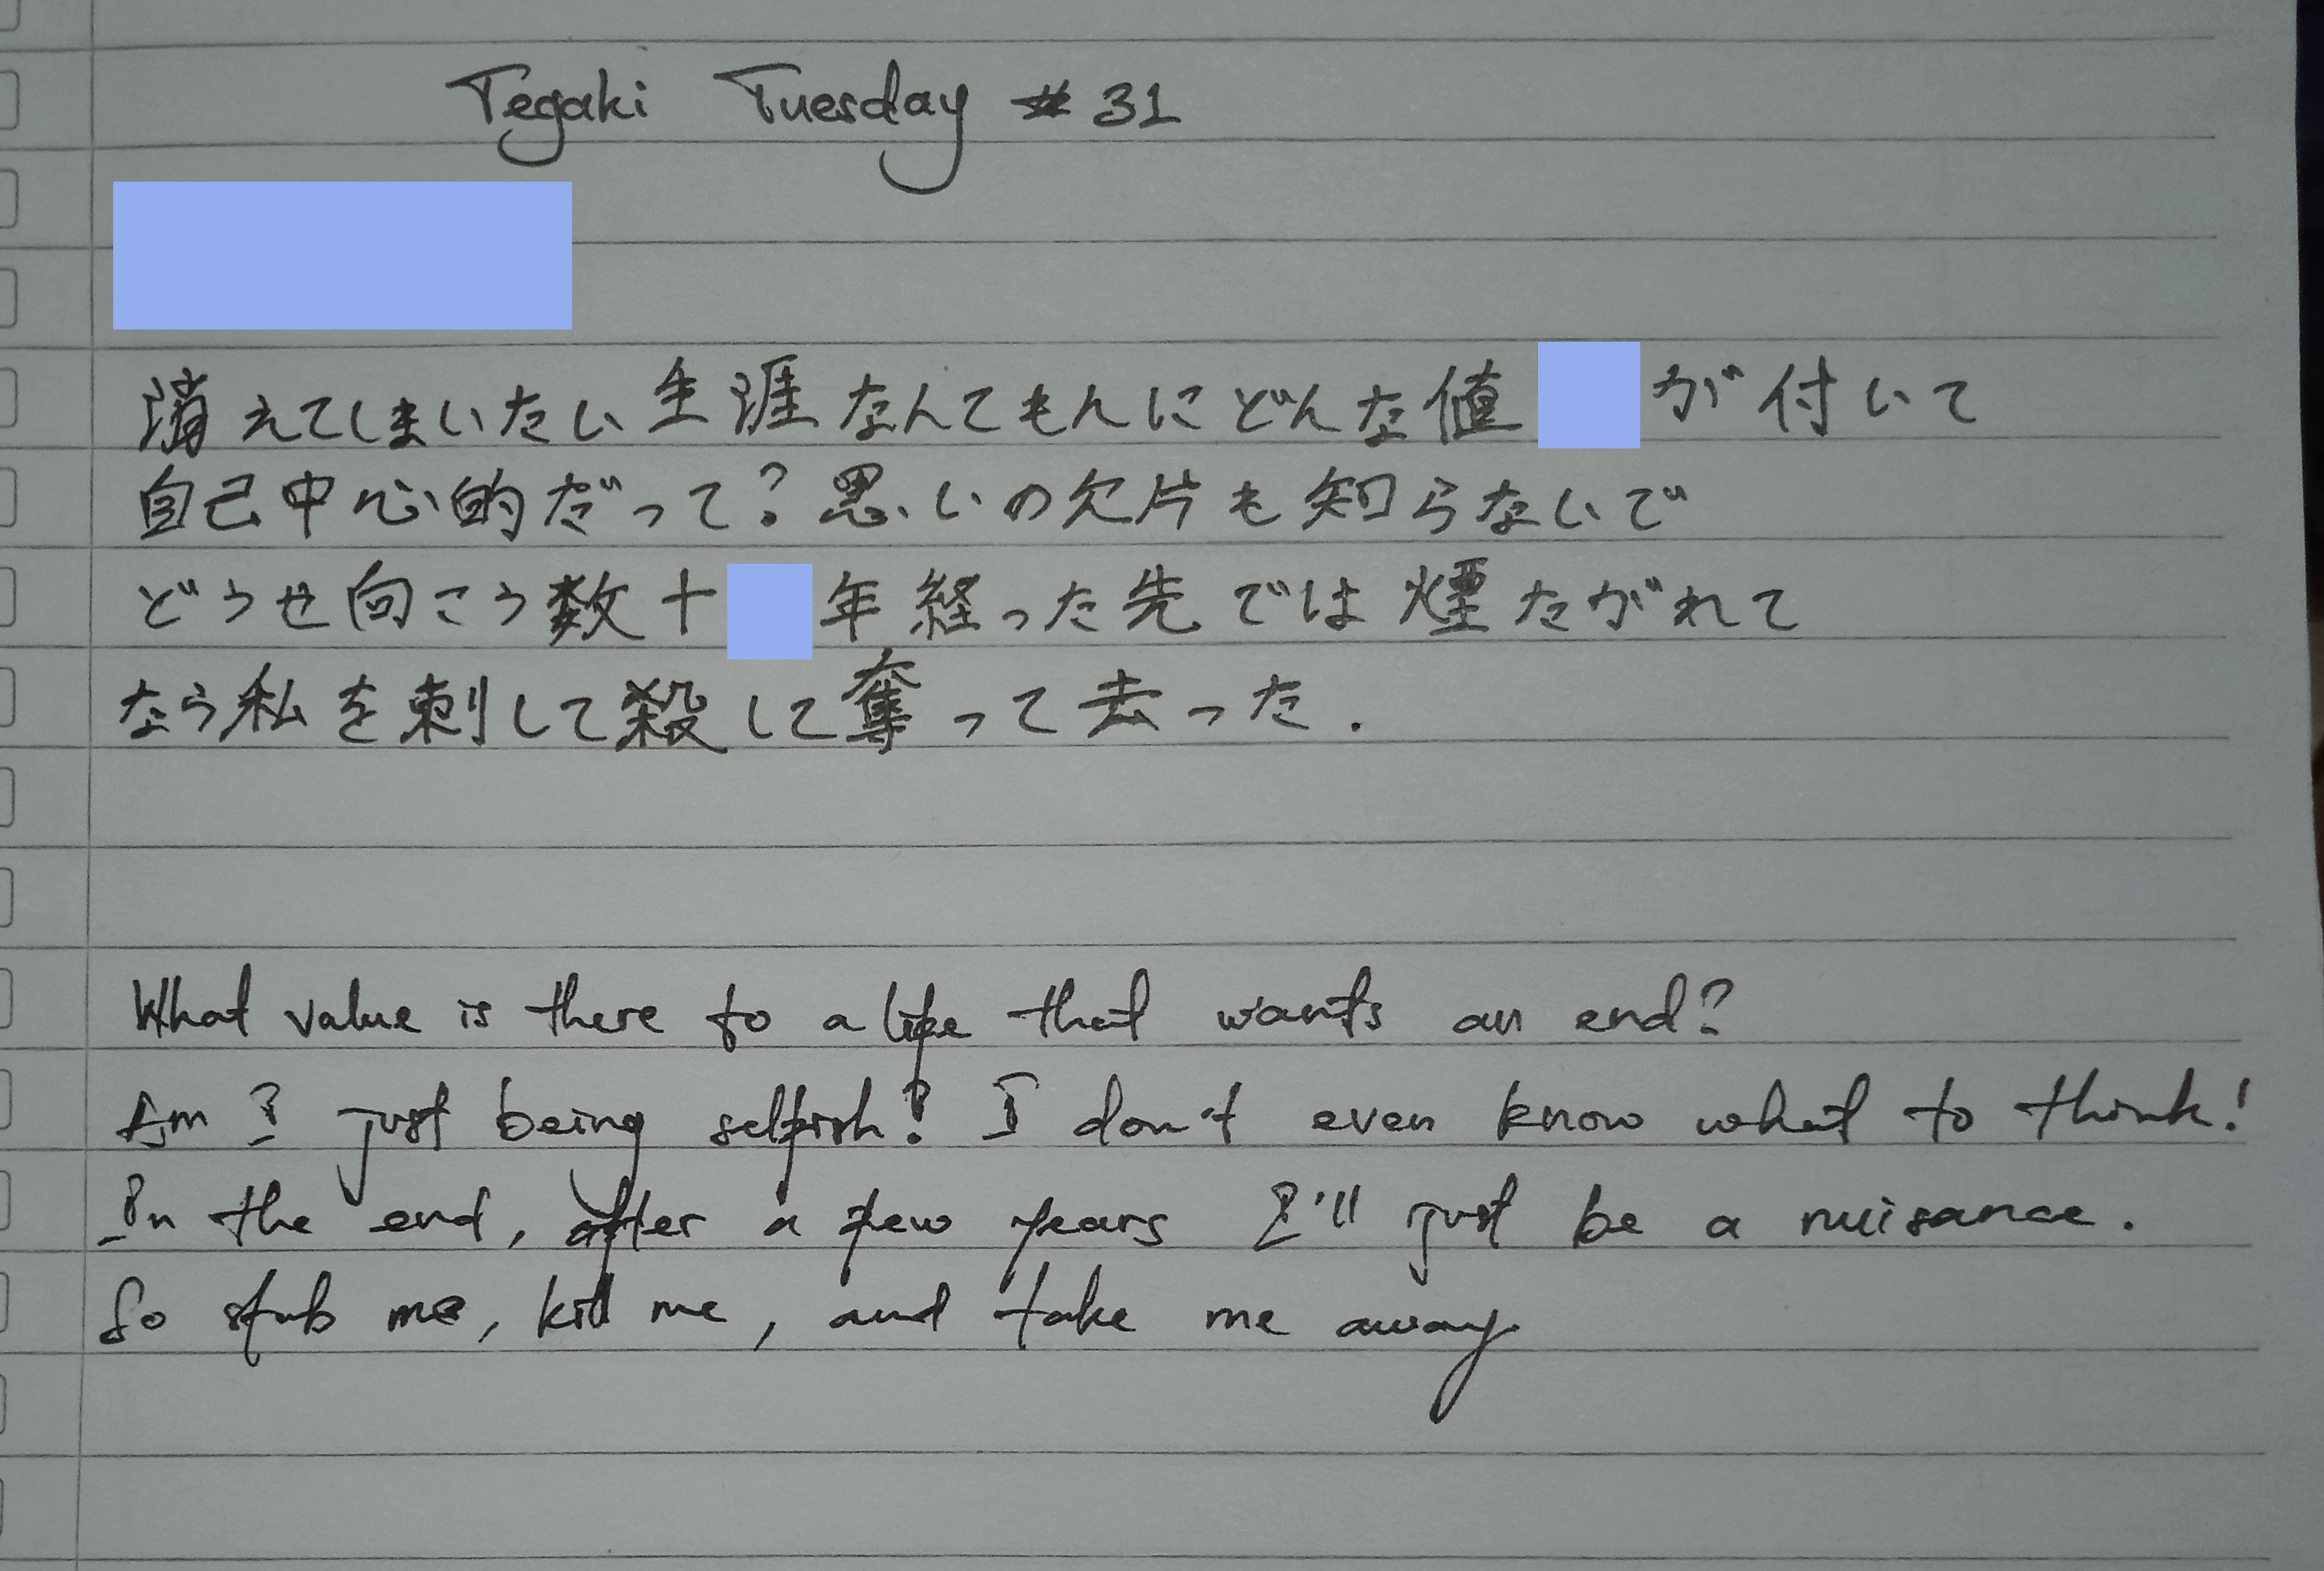 Tegaki Tuesday #31
消えてしまいたい生涯なんてもんにどんな値が付いて
自己中心的だって?思いの欠片も知らないで
どうせ向こう数十年経った先では煙たがれて
なら私を刺して殺して奪って去った.
What value is there to a life that wants an end?
Am I just being selfish? I don't even know what to think!
In the end, after a few years I'll just be a nuisance.
So stab me, kill me, and take me away.